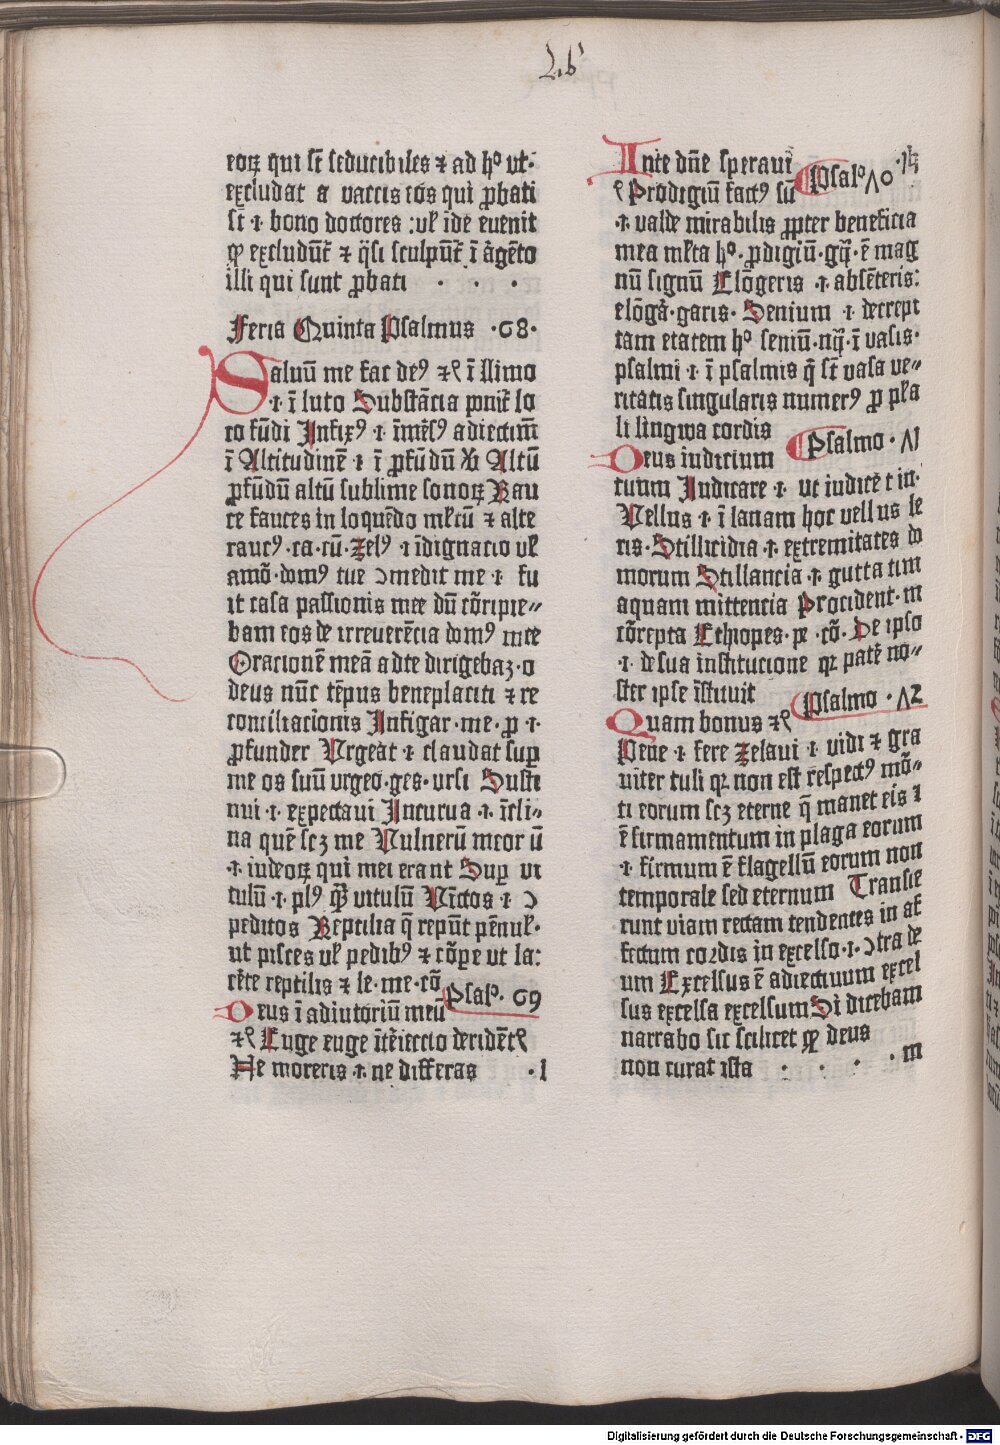 Lib'
eoꝝ qui sūt seducibiles ⁊ ad hº vt·
excludāt a vaccis ios qui ꝓbati
st̄ ·ı· bono doctores : vl' īde euenit
ꝙ excludūt' ⁊ q̄si sculpūt' ī āgēto
illi qui sunt ꝓbati · · ·
Feria Quinta Psalmus ·68·
Saluū me fac de⁹ ⁊ꝰ ī llimo
·ı· ī luto Substācia ponit' lo
co fūdi Infix⁹ ·ı· īmēs⁹ adiectiū
ī Altitudinē ·ı· ī ꝓfūdū Altū
ꝓfūdū altū sublime sonoꝝ Rau
ce fauces in loquēdo ml'tū ⁊ alte
rauc⁹ ·ca·cū· Zel⁹ ·ı· īdignacio vl'
amō·dom⁹ tue ↄmedit me ·ı· fu
it casa passionis mee dū cōripie⸗
bam eos de irreuerēcia dom⁹ mee
Oracionē meā ad te dirigebaꝫ·o
deus nūc tēpus beneplaciti ⁊ re
conciliacionis Infigar·me·ꝑ ·ı·
ꝓfunder Vrgeāt ·ı· claudat suꝑ
me os suū vrgeo·ges·vrsi Susti
nui ·ı· expectaui Incurua ·ı· īcli⸗
na quē scꝫ me Vulnerū meor ū
·ı· iudeoꝝ qui mei erant Suꝑ vi
tulū ·ı· pl⁹ ꝙ̄ vitulū Vīctos ·ı· ↄ
peditos Reptilia q̄ repūt pēnul'·
ut pisces vl' pedib⁹ ⁊ cōꝑe vt la:
cēte reptilis ⁊ le·me·cō
Psalº· 69
Deus ī adiutoriū meū
⁊ꝰ Euge euge ītēieccio deridētꝰ
Ne moreris ·ı· ne differas ·l
In te dn̄e speraui
Psalº Λ0
ꝰ Prodigiū fact⁹ sū
·ı· valde mirabilis ꝓpter beneficia
mea ml'ta hº· ꝓdigiū·gij̄·ē mag
nū signū Elōgeris ·ı· absēteris:
elōgā·garis· Senium ·ı· decrepi
tam etatem hº seniū·nij̄·ī vasis·
psalmi ·ı· ī psalmis q̄ st̄ vasa ve⸗
ritatis singularis numer⁹ ꝓ pl'a
li lingwa cordis
Psalmo · Λ1
Deus iudicium
tuum Iudicare ·ı· ut iudicēt in·
Vellus ·ı· ī lanam hoc vellus le
ris· Stillicidia ·ı· extremitates do
morum Stillancia ·ı· gutta tim
aquam mittencia Procident·in
cōrepta Ethiopes·pe·cō· De ipso
·ı· de sua institucione qꝛ patē no⸗
ster ipse īstituit
Psalmo · Λ2
Quam bonus ⁊ꝰ
Pene ·ı· fere Zelaui ·ı· vidi ⁊ gra
uiter tuli qꝛ non est respect⁹ mō⸗
ti eorum scꝫ eterne q̄ manet eis ⁊
ē firmamentum in plaga eorum
·ı· firmum ē flagellū eorum non
temporale sed eternum Transie
runt viam rectam tendentes in af
fectum cordis in excelso ·ı· ↄtra de
um Excelsus ē adiectiuum excel
sus excelsa excelsum Si dicebam
narrabo sic scilicet ꝙ deus
non curat ista · · · m
Digitalisierung gefördert durch die Deutsche Forschungsgemeinschaft - DFG